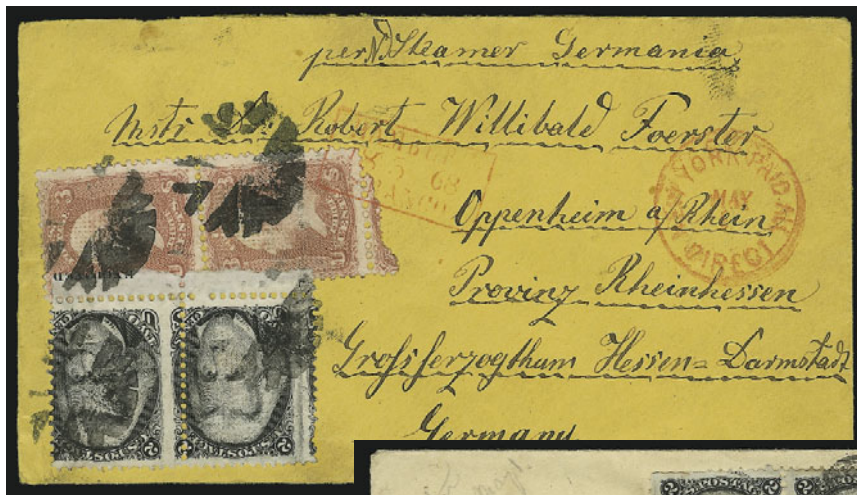 per Steamer Germania
Mstr Dr. Robert Willibald Foerster
Oppenheim a/Rhein
Provinz Rheinhessen
Grossherzogthum Hessen=Darmstadt
Germany
YORK PAID
MAY
DIRECT
68
FRANCO
3
3
2
2
POST
POST
2
POSTAGE
2